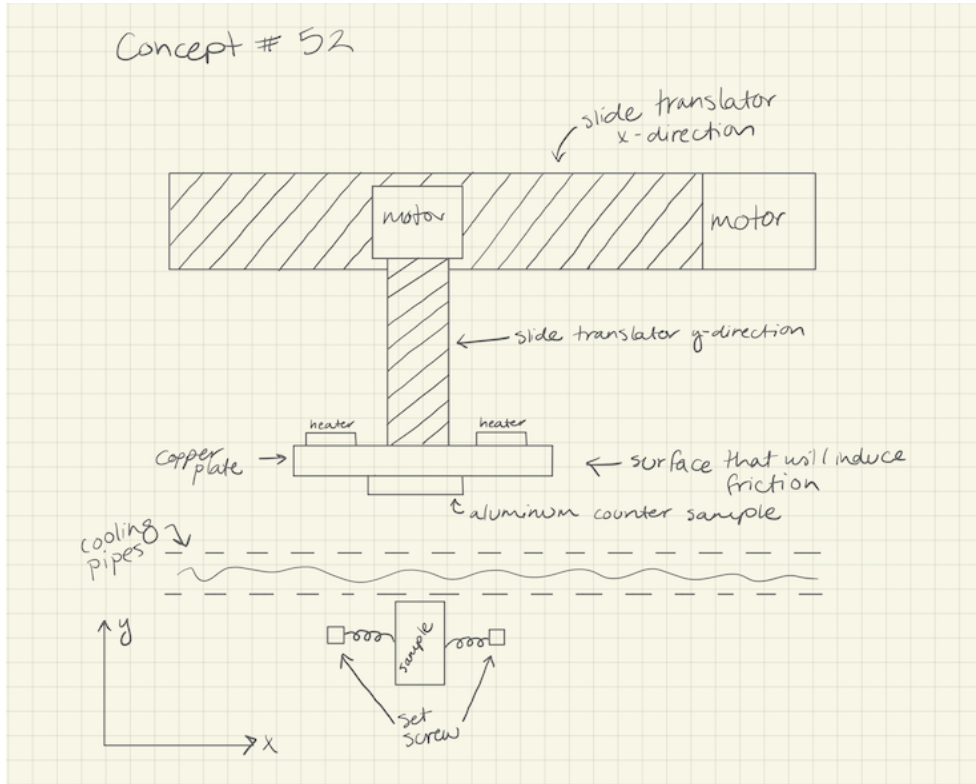 Concept # 52
slide translator
x-direction
motor
motor
slide translator y-direction
heater
heater
copper
plate
surface that will induce
friction
aluminum counter sample
cooling
pipes
y
sample
set
screw
x